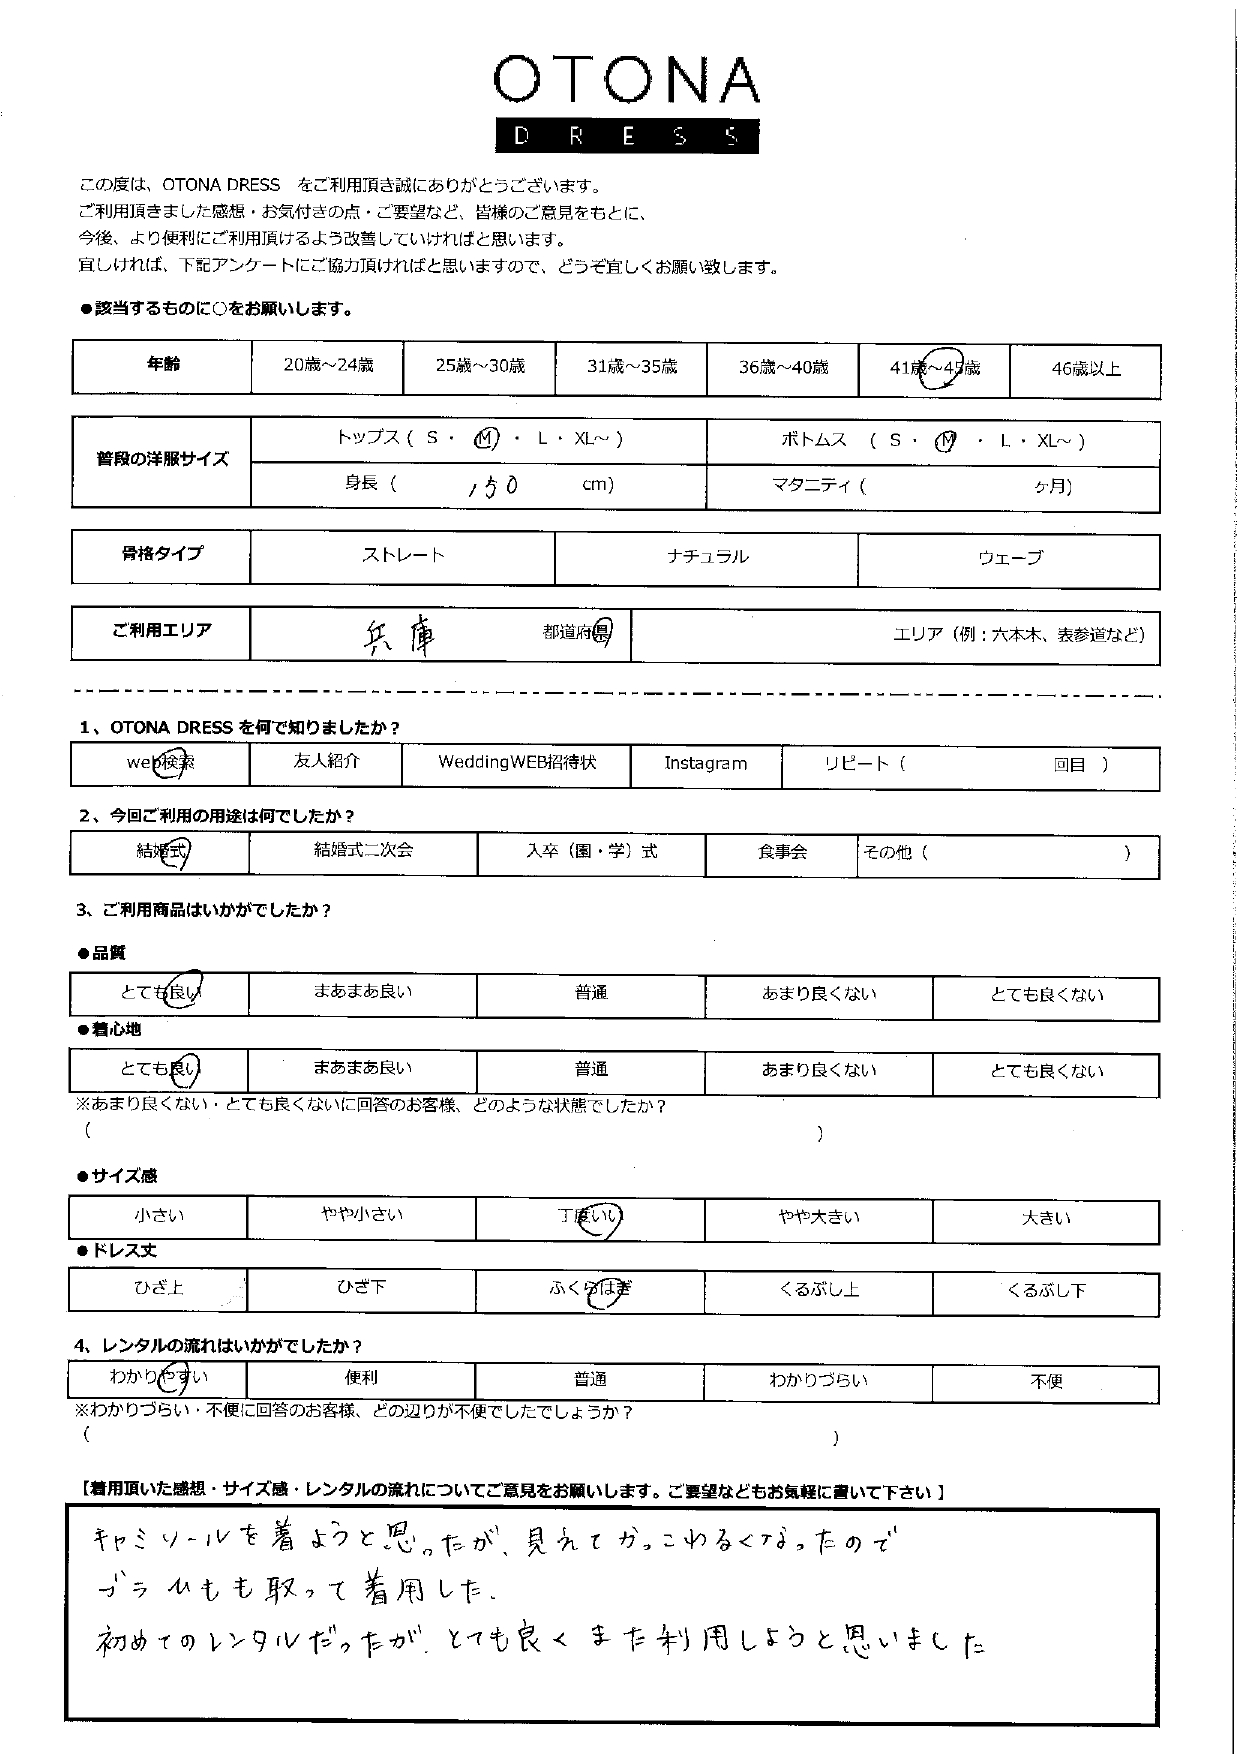 OTONA
DRESS
この度は、OTONA DRESS　をご利用頂き誠にありがとうございます。
ご利用頂きました感想・お気付きの点・ご要望など、皆様のご意見をもとに、
今後、より便利にご利用頂けるよう改善していければと思います。
宜しければ、下記アンケートにご協力頂ければと思いますので、どうぞ宜しくお願い致します。
●該当するものに○をお願いします。
年齢 20歳～24歳 25歳～30歳 31歳～35歳 36歳～40歳 41歳～45歳 46歳以上
普段の洋服サイズ トップス ( S ・ M ・ L ・ XL～ ) ボトムス ( S ・ M ・ L ・ XL～ )
身長 ( 150 cm) マタニティ ( ケ月)
骨格タイプ ストレート ナチュラル ウェーブ
ご利用エリア 兵庫 都道府県 エリア（例：六本木、表参道など）
1、OTONA DRESS を何で知りましたか？
web検索 友人紹介 WeddingWEB招待状 Instagram リピート ( 回目 )
2、今回ご利用の用途は何でしたか？
結婚式 結婚式二次会 入卒（園・学）式 食事会 その他 ( )
3、ご利用商品はいかがでしたか？
●品質
とても良い まあまあ良い 普通 あまり良くない とても良くない
●着心地
とても良い まあまあ良い 普通 あまり良くない とても良くない
※あまり良くない・とても良くないに回答のお客様、どのような状態でしたか？
( )
●サイズ感
小さい やや小さい 丁度いい やや大きい 大きい
●ドレス丈
ひざ上 ひざ下 ふくらはぎ くるぶし上 くるぶし下
4、レンタルの流れはいかがでしたか？
わかりやすい 便利 普通 わかりづらい 不便
※わかりづらい・不便に回答のお客様、どの辺りが不便でしたでしょうか？
( )
【着用頂いた感想・サイズ感・レンタルの流れについてご意見をお願いします。ご要望などもお気軽に書いて下さい】
キャミソールを着ようと思ったが、見えてかっこわるくなったので
ブラひもも取って着用した。
初めてのレンタルだったが、とても良くまた利用しようと思いました